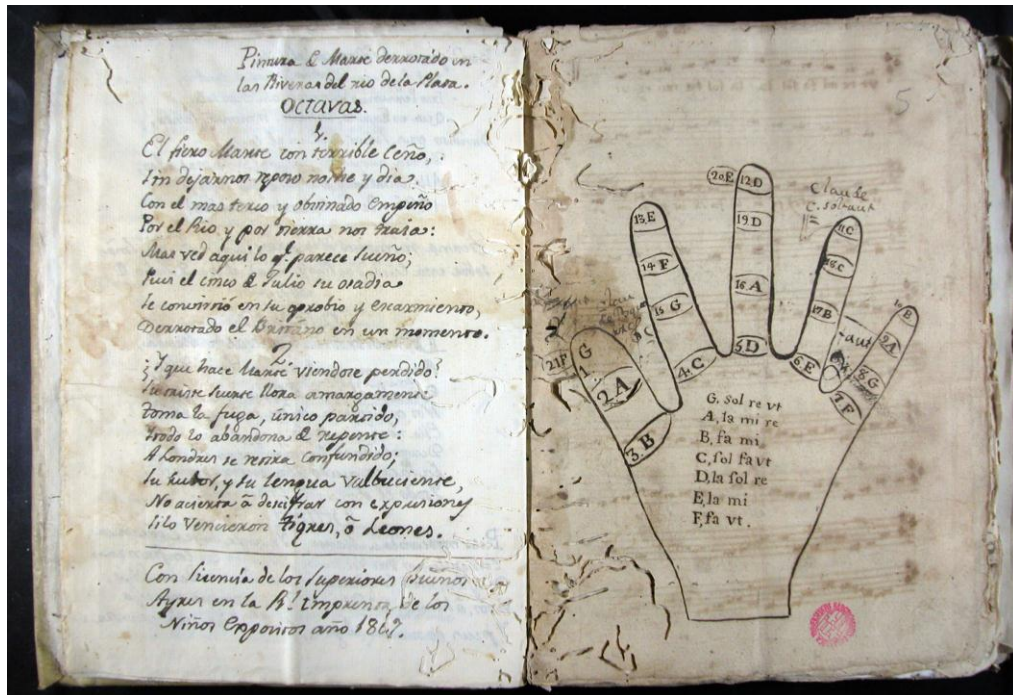 Pintura & Marte derrotado en
las Riveras del rio de la Plata.
OCTAVAS.
1.
El fiero Marte con terrible Ceño,
Sin dejarnos reposo noche y dia
Con el mas terco y obstinado Empeño
Por el Rio, y por tierra nos traía:
Mas ved aqui lo q.e parece sueño,
Pues el cinco & Julio su osadia
Se convirtió en su oprobio y escarmiento,
Derrotado el Britano en un momento.
2
¿Y que hace Marte viendose perdido?
Su triste suerte llora amargamente
toma la fuga, único partido,
todo lo abandona & repente:
A Londres se retira confundido;
Su rubor, y su lengua valbuciente,
No acierta â descifrar con expresiones
Si lo vencieron tigres, ô Leones.
Con licencia de los Superiores Buenos
Ayres en la R.l Imprenta de los
Niños Expositos año 1807.
5
20E 12D
13.E
19 D
11C
18.C
14 F
16 A
15 G
17B
10 B
9A
8G
7F
21F
G
1
2A
3.B
4.C
5D
6.E
G. sol re vt
A, la mi re
B, fa mi
C, sol fa vt
D, la sol re
E, la mi
F, fa vt.